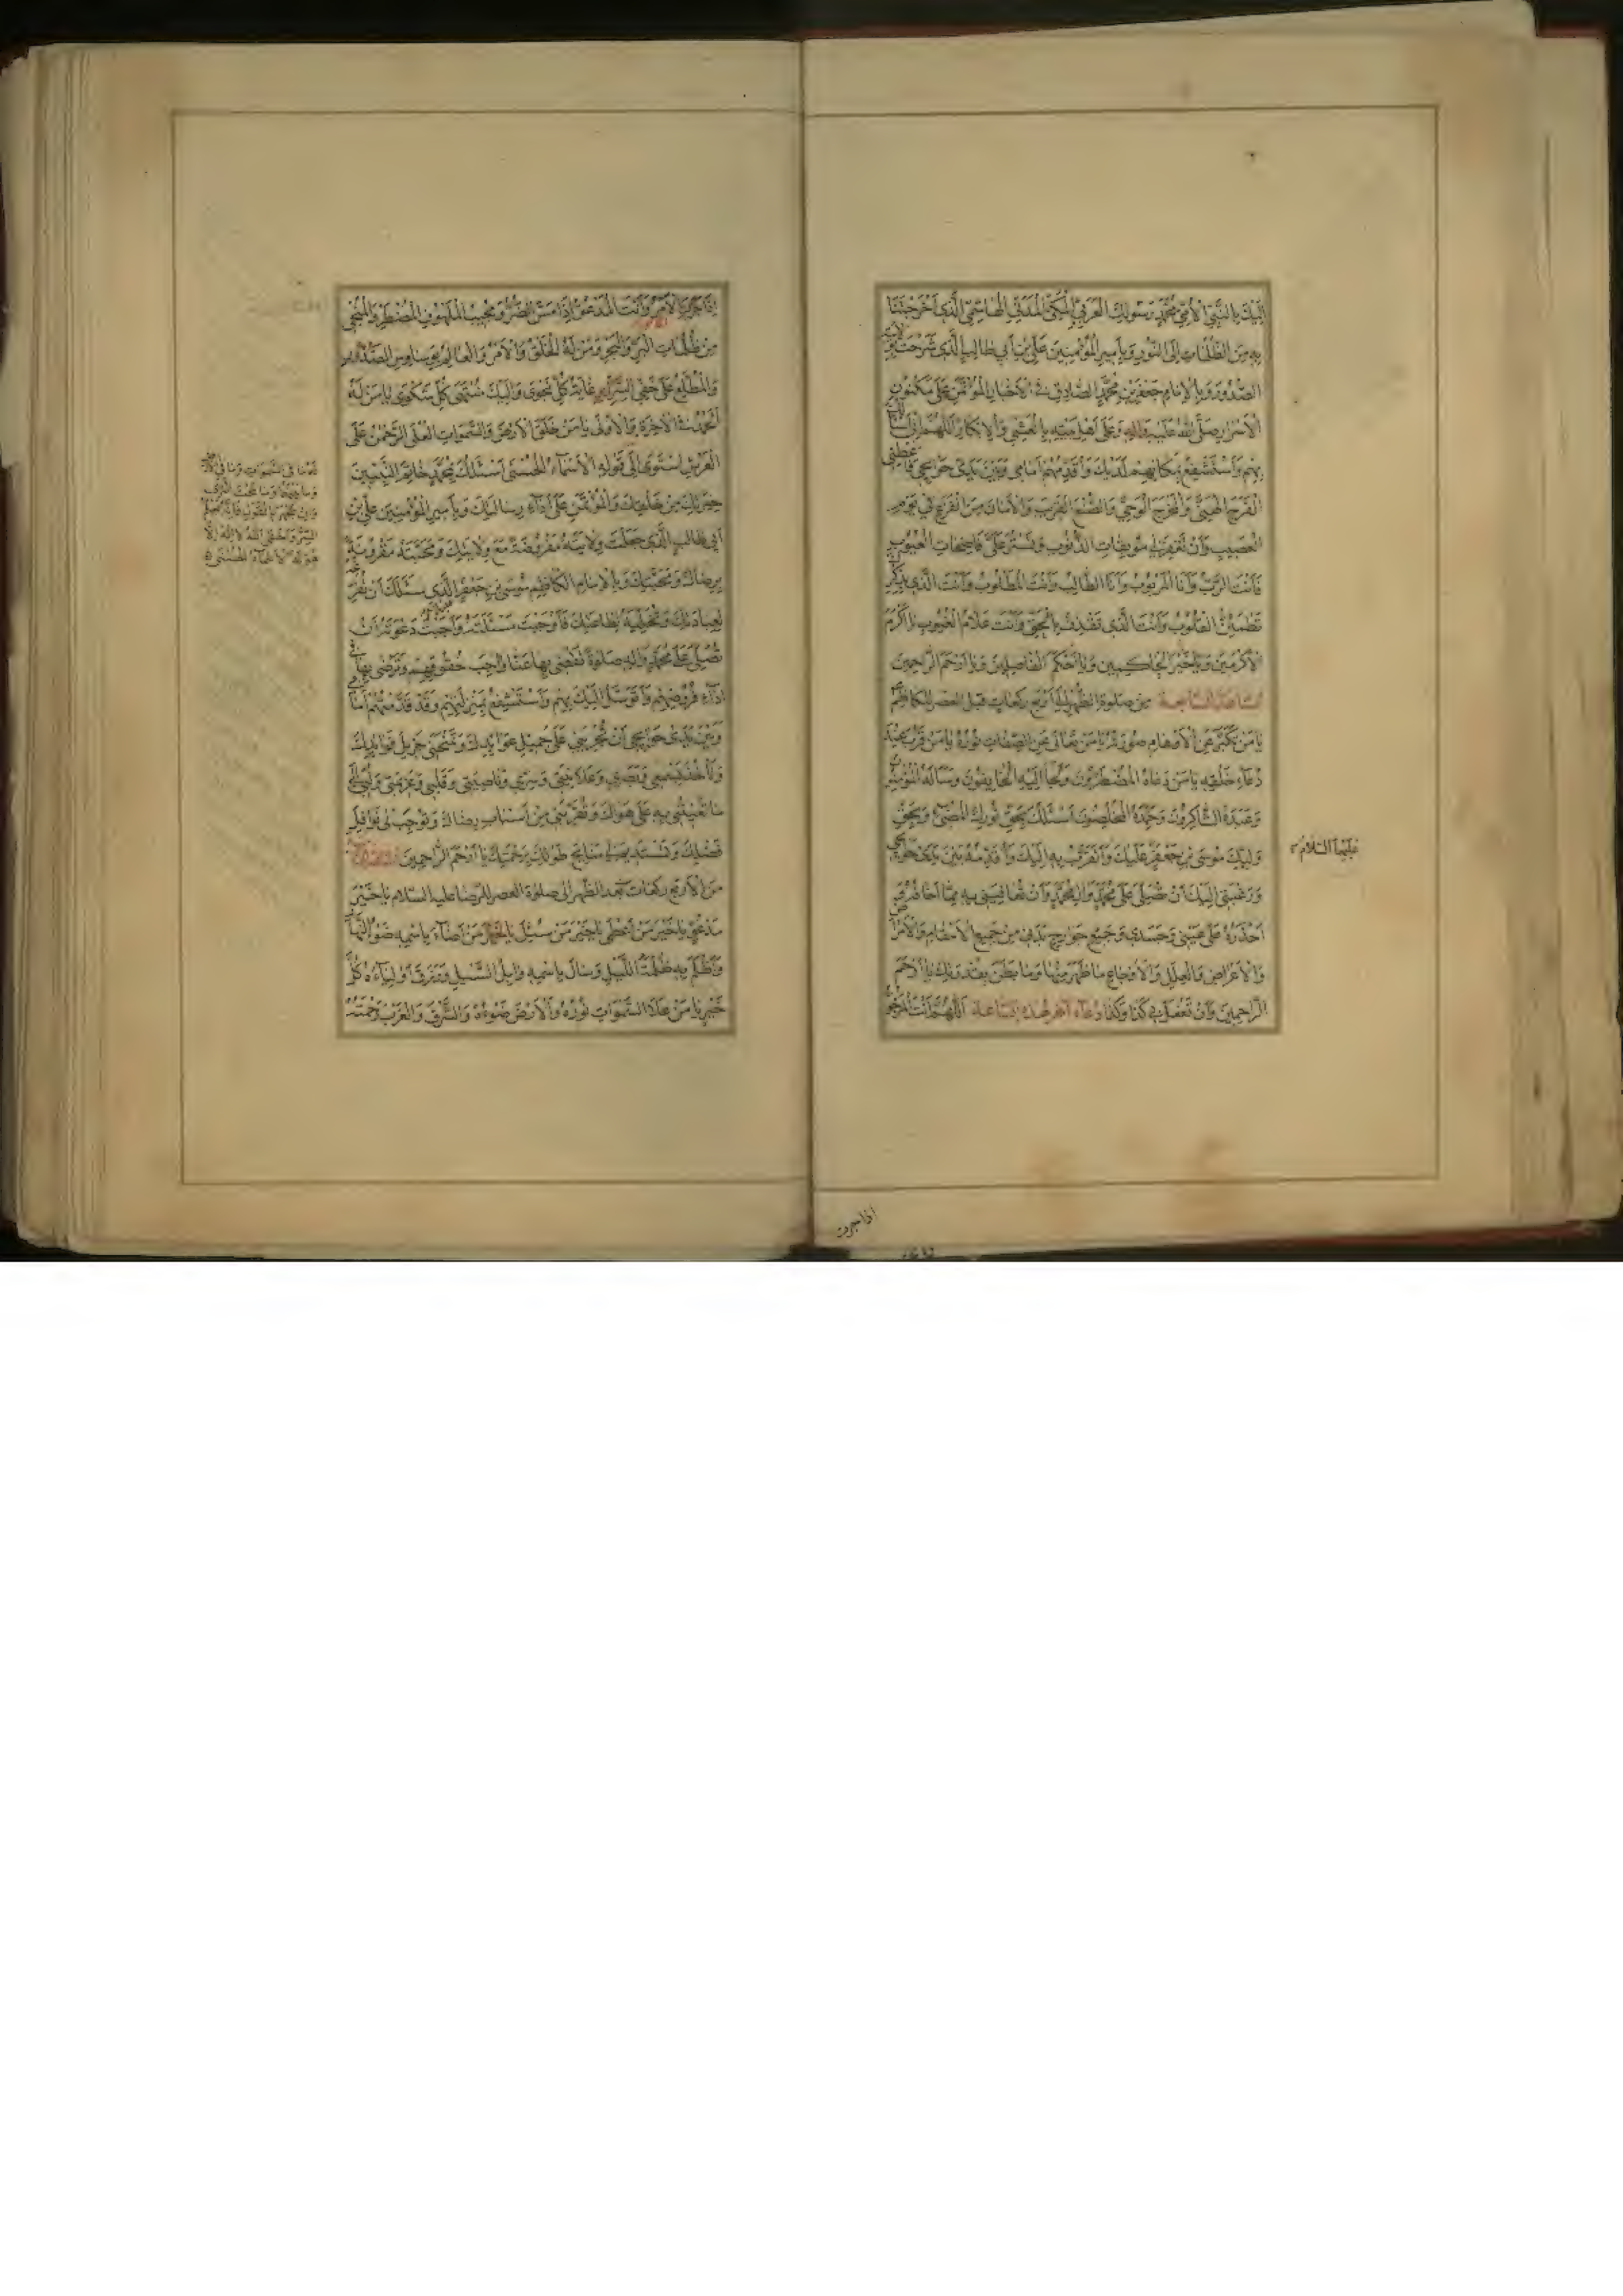 إليك بالنبي الأمي محمد رسولك العربي المكي المدني الهاشمي الذي أخرجتنا
به من الظلمات إلى النور وبأمير المؤمنين علي بن أبي طالب الذي شرحت بولايته
الصدور وبالإمام جعفر بن محمد الصادق في الأخبار المؤتمن على مكنون
الأسرار صلى الله عليه وآله وعلى أهل بيته بالعشي والإبكار اللهم إني أسألك
بهم وأستشفع بمكانهم لديك وأقدمهم أمامي وبين يدي حوائجي فأعطني
الفرج الهنيء والمخرج الوحي والصنع القريب والأمان من الفزع في يوم
العصيب وأن تغفر لي موبقات الذنوب وتستر علي فاضحات العيوب
فأنت الرب وأنا المربوب وأنا الطالب وأنت المطلوب وأنت الذي بذكرك
تطمئن القلوب وأنت الذي تقذف بالحق وأنت علام الغيوب يا أكرم
الأكرمين ويا خير الحاكمين ويا أحكم الفاصلين ويا أرحم الراحمين
الساعة السابعة من صلوة الظهر إلى أربع ركعات قبل العصر للكاظم
عليهما السلام
يا من تكبر عن الأوهام صورته يا من تعالى عن الصفات نوره يا من قرب عند
دعاء خلقه يا من دعاه المضطرون ولجأ إليه الخائفون وسأله المؤمنون
وعبده الشاكرون وحمده المخلصون أسئلك بحق نورك المضيء وبحق
وليك موسى بن جعفر عليك وأتقرب به إليك وأقدمه بين يدي حوائجي
ورغبتي إليك أن تصلي على محمد وآل محمد وأن تعافيني به مما أخافه و
أحذره على عيني وجسدي وجميع جوارح بدني من جميع الأسقام والأمراض
والأعراض والعلل والأوجاع ما ظهر منها وما بطن بقدرتك يا أرحم
الراحمين وأن تفعل بي كذا وكذا دعاء آخر لهذه الساعة اللهم أنت المرجو
اذا حزن
إذا حزن الأمر وأنت المدعو إذا مس الضر ومجيب الملهوف المضطر والمنجي
من ظلمات البر والبحر ومن له الخلق والأمر والعالم بوساوس الصدور
والمطلع على خفي السر غاية كل نجوى وإليك منتهى كل شكوى يا من له
الحمد في الآخرة والأولى يا من خلق الأرض والسموات العلى الرحمن على
العرش استوى إلى قوله الأسماء الحسنى أسئلك بمحمد خاتم النبيين
له ما في السموات وما في الأرض
وما بينهما وما تحت الثرى
وإن تجهر بالقول فإنه يعلم
السر وأخفى الله لا إله إلا
هو له الأسماء الحسنى
خيرتك من خلقك والمؤتمن على أداء رسالتك وبأمير المؤمنين علي بن
أبي طالب الذي جعلت ولايته مفروضة مع ولايتك ومحبته مقرونة
برضاك ومحبتك وبالإمام الكاظم موسى بن جعفر الذي سئلك أن تفرغه
لعبادتك وتخليه لطاعتك فأوجبت مسئلته وأجبت دعوته أن
تصلي على محمد وآله صلوة تقضي بها عنا واجب حقوقهم وترضى بها في
أداء فروضهم وأتوسل إليك بهم وأستشفع بمنزلتهم وقد قدمتهم أمامي
وبين يدي حوائجي أن تجريني على جميل عوائدك وتمنحني جزيل فوائدك
وتأخذ بسمعي وبصري وعلانيتي وسري وناصيتي وقلبي وعزيمتي ولبي إلى
ما تعينني به على هواك وتقربني من أسباب رضاك وتوجب لي نوافل
فضلك وتستديم لي منايح طولك برحمتك يا أرحم الراحمين
من الأربع ركعات بعد الظهر إلى صلوة العصر للرضا عليه السلام يا خير
مدعو يا خير من أعطى يا خير من سئل يا من أضاء باسمه ضوء النهار
وأظلم به ظلمة الليل وسال باسمه وابل السيل ورزق أولياءه كل
خير يا من علا السموات نوره والأرض ضوءه والشرق والغرب رحمته